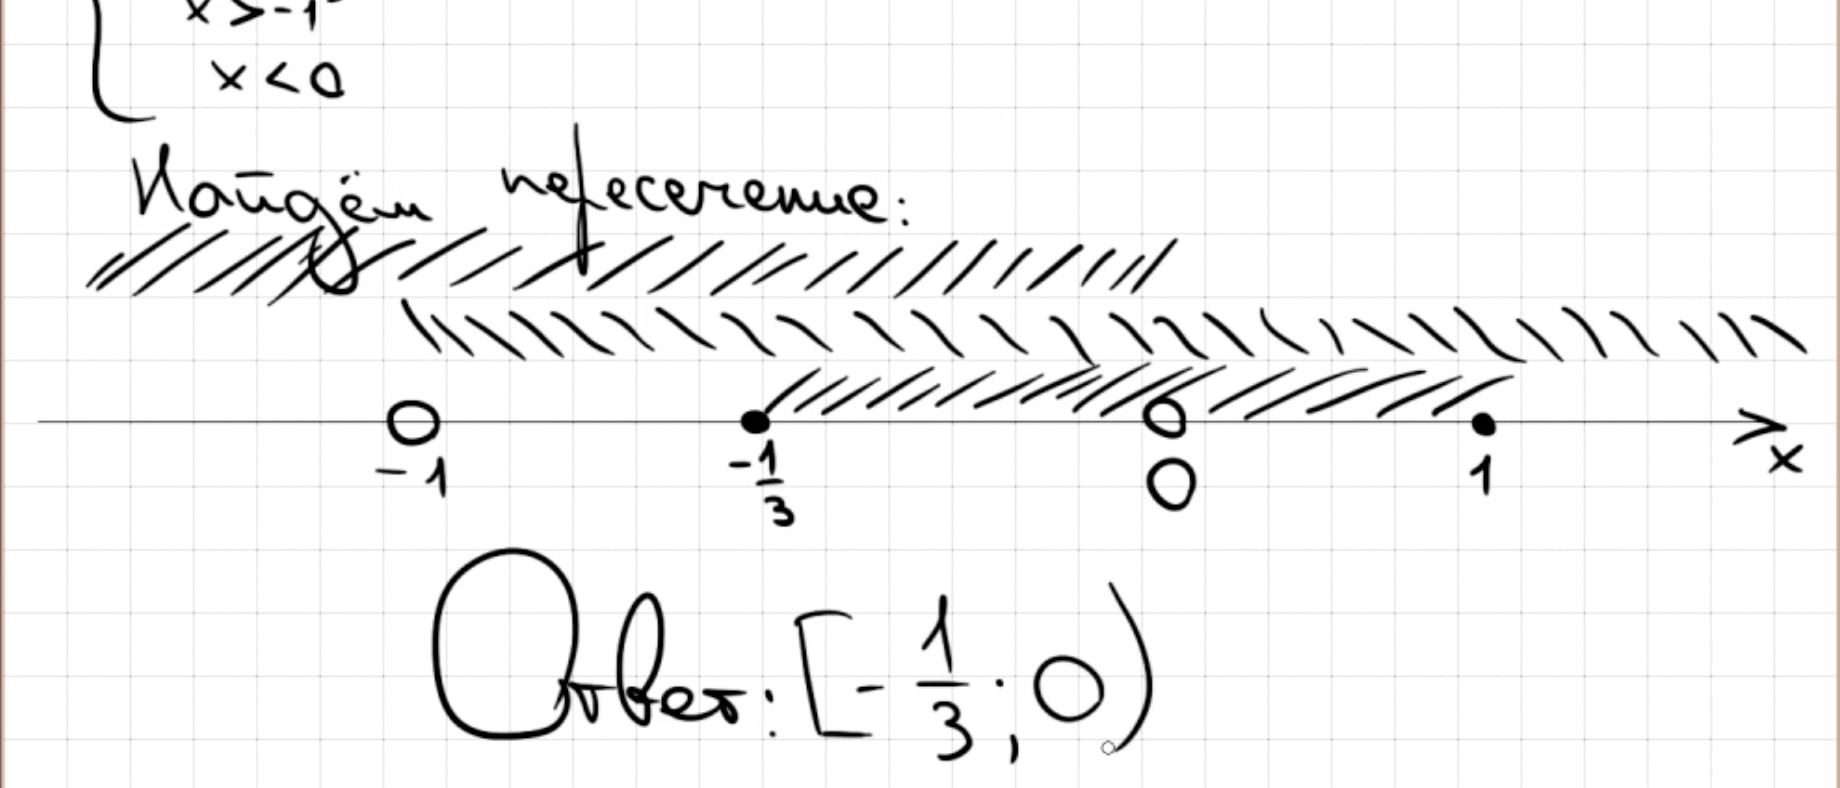 x > -1
x < 0
Найдём пересечение:
-1 -1/3 0 1 x
Ответ: [-1/3; 0)